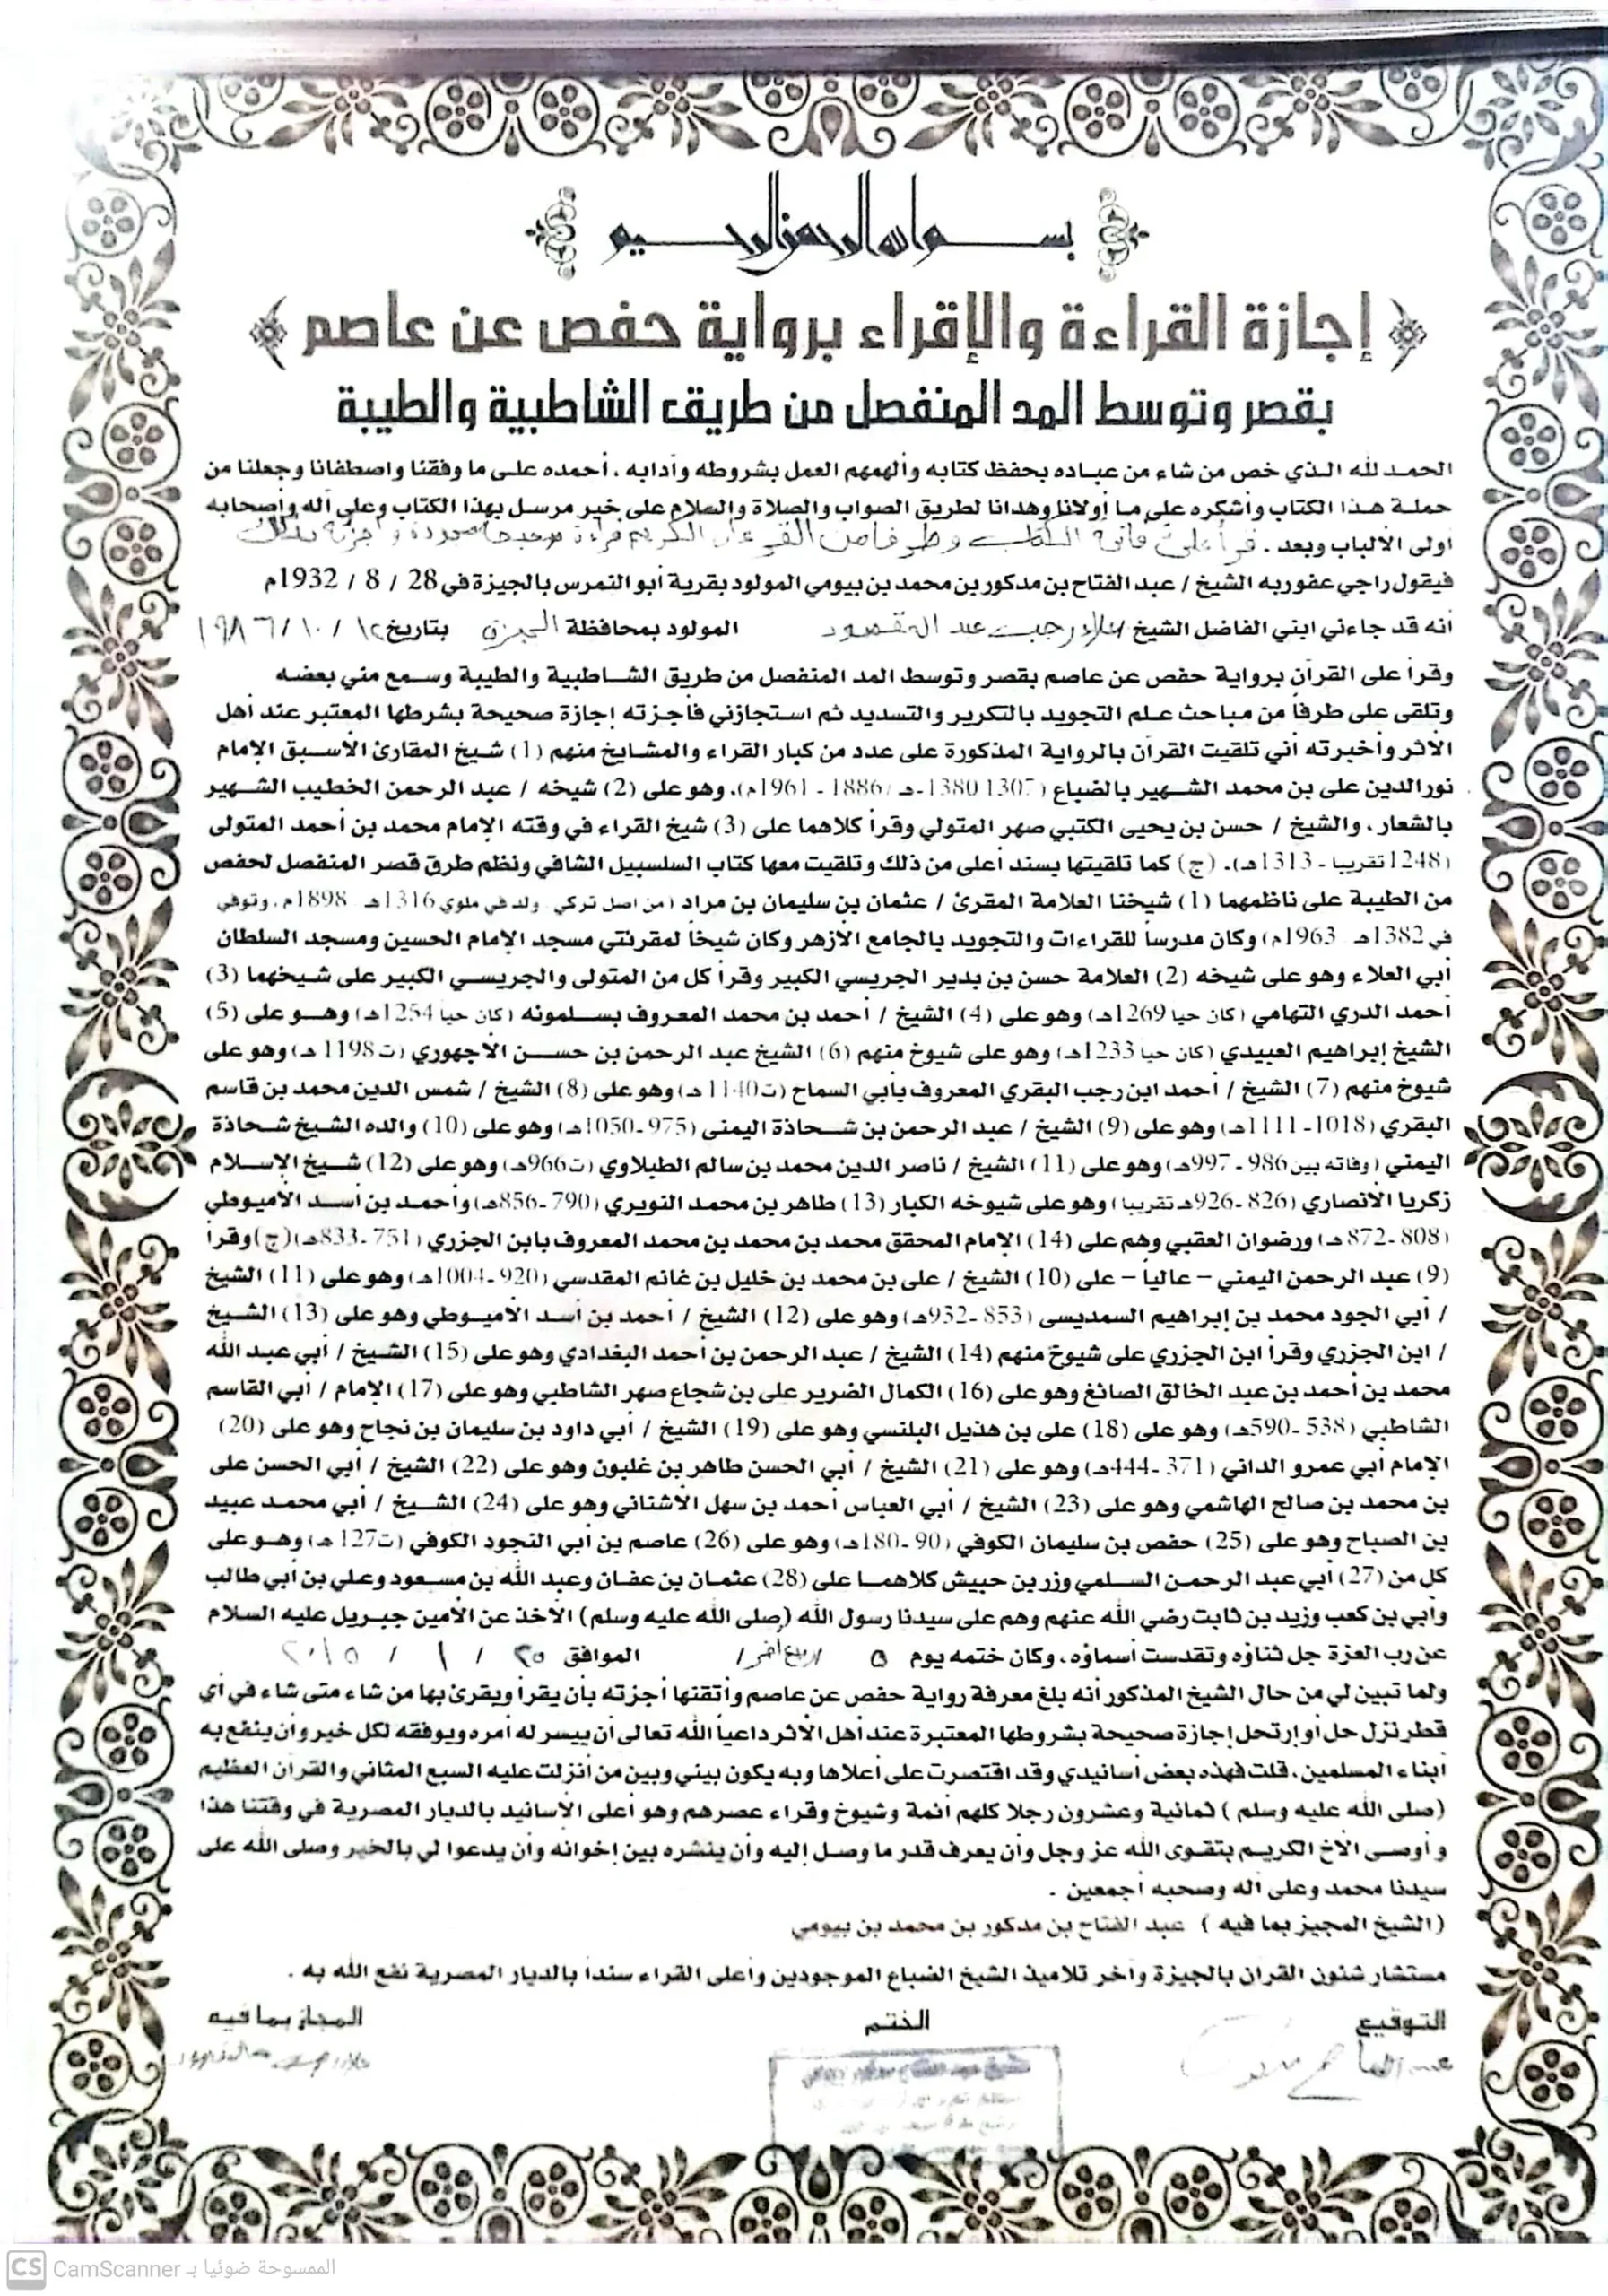 بسم الله الرحمن الرحيم
﴿ إجازة القراءة والإقراء برواية حفص عن عاصم ﴾
بقصر وتوسط المد المنفصل من طريق الشاطبية والطيبة
الحمد لله الذي خص من شاء من عباده بحفظ كتابه وألهمهم العمل بشروطه وآدابه ، أحمده على ما وفقنا واصطفانا وجعلنا من
حملة هذا الكتاب وأشكره على ما أولانا وهدانا لطريق الصواب والصلاة والسلام على خير مرسل بهذا الكتاب وعلى آله وأصحابه
أولى الألباب وبعد . قرأ علىّ فاتحة الكتاب وطرفا من القرءان الكريم قراءة صحيحة مجودة وأجزته بذلك
فيقول راجي عفو ربه الشيخ / عبد الفتاح بن مدكور بن محمد بن بيومي المولود بقرية أبو النمرس بالجيزة في 28 / 8 / 1932م
أنه قد جاءني ابني الفاضل الشيخ / علاء رجب عبد المقصود المولود بمحافظة الجيزة بتاريخ ١٢ / ١٠ / ١٩٨٦
وقرأ على القرآن برواية حفص عن عاصم بقصر وتوسط المد المنفصل من طريق الشاطبية والطيبة وسمع مني بعضه
وتلقى على طرفاً من مباحث علم التجويد بالتكرير والتسديد ثم استجازني فأجزته إجازة صحيحة بشرطها المعتبر عند أهل
الأثر وأخبرته أني تلقيت القرآن بالرواية المذكورة على عدد من كبار القراء والمشايخ منهم (1) شيخ المقارئ الأسبق الإمام
نور الدين على بن محمد الشهير بالضباع (1307 1380-هـ / 1886 - 1961م)، وهو على (2) شيخه / عبد الرحمن الخطيب الشهير
بالشعار، والشيخ / حسن بن يحيى الكتبي صهر المتولي وقرأ كلاهما على (3) شيخ القراء في وقته الإمام محمد بن أحمد المتولى
(1248 تقريبا - 1313هـ). (ج) كما تلقيتها بسند أعلى من ذلك وتلقيت معها كتاب السلسبيل الشافي ونظم طرق قصر المنفصل لحفص
من الطيبة على ناظمهما (1) شيخنا العلامة المقرئ / عثمان بن سليمان بن مراد (من أصل تركي ولد في ملوي 1316هـ 1898م، وتوفي
في 1382هـ 1963م) وكان مدرساً للقراءات والتجويد بالجامع الأزهر وكان شيخاً لمقرئتي مسجد الإمام الحسين ومسجد السلطان
أبي العلاء وهو على شيخه (2) العلامة حسن بن بدير الجريسي الكبير وقرأ كل من المتولى والجريسي الكبير على شيخهما (3)
أحمد الدري التهامي (كان حيا 1269هـ) وهو على (4) الشيخ / أحمد بن محمد المعروف بسلمونه (كان حيا 1254هـ) وهو على (5)
الشيخ إبراهيم العبيدي (كان حيا 1233هـ) وهو على شيوخ منهم (6) الشيخ عبد الرحمن بن حسن الأجهوري (ت1198 هـ) وهو على
شيوخ منهم (7) الشيخ / أحمد ابن رجب البقري المعروف بأبي السماح (ت1140 هـ) وهو على (8) الشيخ / شمس الدين محمد بن قاسم
البقري (1018-1111هـ) وهو على (9) الشيخ / عبد الرحمن بن شحاذة اليمنى (975-1050هـ) وهو على (10) والده الشيخ شحاذة
اليمني (وفاته بين 986 - 997هـ) وهو على (11) الشيخ / ناصر الدين محمد بن سالم الطبلاوي (ت966هـ) وهو على (12) شيخ الإسلام
زكريا الأنصاري (826 -926هـ تقريبا) وهو على شيوخه الكبار (13) طاهر بن محمد النويري (790 -856هـ) وأحمد بن أسد الأميوطي
(808 -872 هـ) ورضوان العقبي وهم على (14) الإمام المحقق محمد بن محمد بن محمد المعروف بابن الجزري (751 -833هـ) (ج) وقرأ
(9) عبد الرحمن اليمني – عالياً – على (10) الشيخ / على بن محمد بن خليل بن غانم المقدسي (920 -1004هـ) وهو على (11) الشيخ
/ أبي الجود محمد بن إبراهيم السمديسى (853 -932هـ) وهو على (12) الشيخ / أحمد بن أسد الأميوطي وهو على (13) الشيخ
/ ابن الجزري وقرأ ابن الجزري على شيوخ منهم (14) الشيخ / عبد الرحمن بن أحمد البغدادي وهو على (15) الشيخ / أبي عبد الله
محمد بن أحمد بن عبد الخالق الصائغ وهو على (16) الكمال الضرير على بن شجاع صهر الشاطبي وهو على (17) الإمام / أبي القاسم
الشاطبي (538 -590هـ) وهو على (18) على بن هذيل البلنسي وهو على (19) الشيخ / أبي داود بن سليمان بن نجاح وهو على (20)
الإمام أبي عمرو الداني (371 -444هـ) وهو على (21) الشيخ / أبي الحسن طاهر بن غلبون وهو على (22) الشيخ / أبي الحسن على
بن محمد بن صالح الهاشمي وهو على (23) الشيخ / أبي العباس أحمد بن سهل الأشناني وهو على (24) الشيخ / أبي محمد عبيد
بن الصباح وهو على (25) حفص بن سليمان الكوفي (90 -180هـ) وهو على (26) عاصم بن أبي النجود الكوفي (ت127 هـ) وهو على
كل من (27) أبي عبد الرحمن السلمي وزر بن حبيش كلاهما على (28) عثمان بن عفان وعبد الله بن مسعود وعلي بن أبي طالب
وأبي بن كعب وزيد بن ثابت رضي الله عنهم وهم على سيدنا رسول الله (صلى الله عليه وسلم) الآخذ عن الأمين جبريل عليه السلام
عن رب العزة جل ثناؤه وتقدست أسماؤه، وكان ختمه يوم ٥ / ربيع آخر / الموافق ٢٥ / ١ / ٢٠١٥
ولما تبين لي من حال الشيخ المذكور أنه بلغ معرفة رواية حفص عن عاصم وأتقنها أجزته بأن يقرأ ويقرئ بها من شاء متى شاء في أي
قطر نزل حل أو ارتحل إجازة صحيحة بشروطها المعتبرة عند أهل الأثر داعياً الله تعالى أن ييسر له أمره ويوفقه لكل خير وأن ينفع به
أبناء المسلمين، قلت فهذه بعض أسانيدي وقد اقتصرت على أعلاها وبه يكون بيني وبين من أنزلت عليه السبع المثاني والقرآن العظيم
(صلى الله عليه وسلم ) ثمانية وعشرون رجلا كلهم أئمة وشيوخ وقراء عصرهم وهو أعلى الأسانيد بالديار المصرية في وقتنا هذا
وأوصى الأخ الكريم بتقوى الله عز وجل وأن يعرف قدر ما وصل إليه وأن ينشره بين إخوانه وأن يدعوا لي بالخير وصلى الله على
سيدنا محمد وعلى آله وصحبه أجمعين .
(الشيخ المجيز بما فيه ) عبد الفتاح بن مدكور بن محمد بن بيومي
مستشار شئون القرآن بالجيزة وآخر تلاميذ الشيخ الضباع الموجودين وأعلى القراء سنداً بالديار المصرية نفع الله به .
التوقيع الختم المجاز بما فيه
عبد الفتاح مدكور علاء رجب عبد المقصود
CS CamScanner الممسوحة ضوئيا بـ